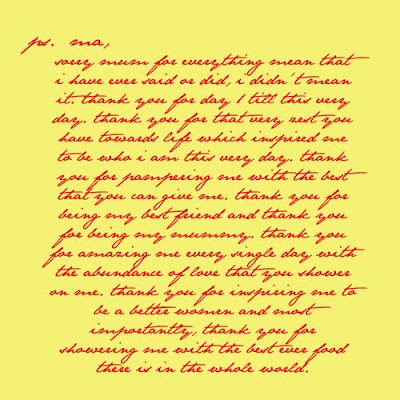 ps. ma,
sorry mum for everything mean that
i have ever said or did, i didn't mean
it. thank you for day 1 till this very
day. thank you for that very zest you
have towards life which inspired me
to be who i am this very day. thank
you for pampering me with the best
that you can give me. thank you for
being my best friend and thank you
for being my mummy. thank you
for amazing me every single day with
the abundance of love that you shower
on me. thank you for inspiring me to
be a better women and most
importantly, thank you for
showering me with the best ever food
there is in the whole world.